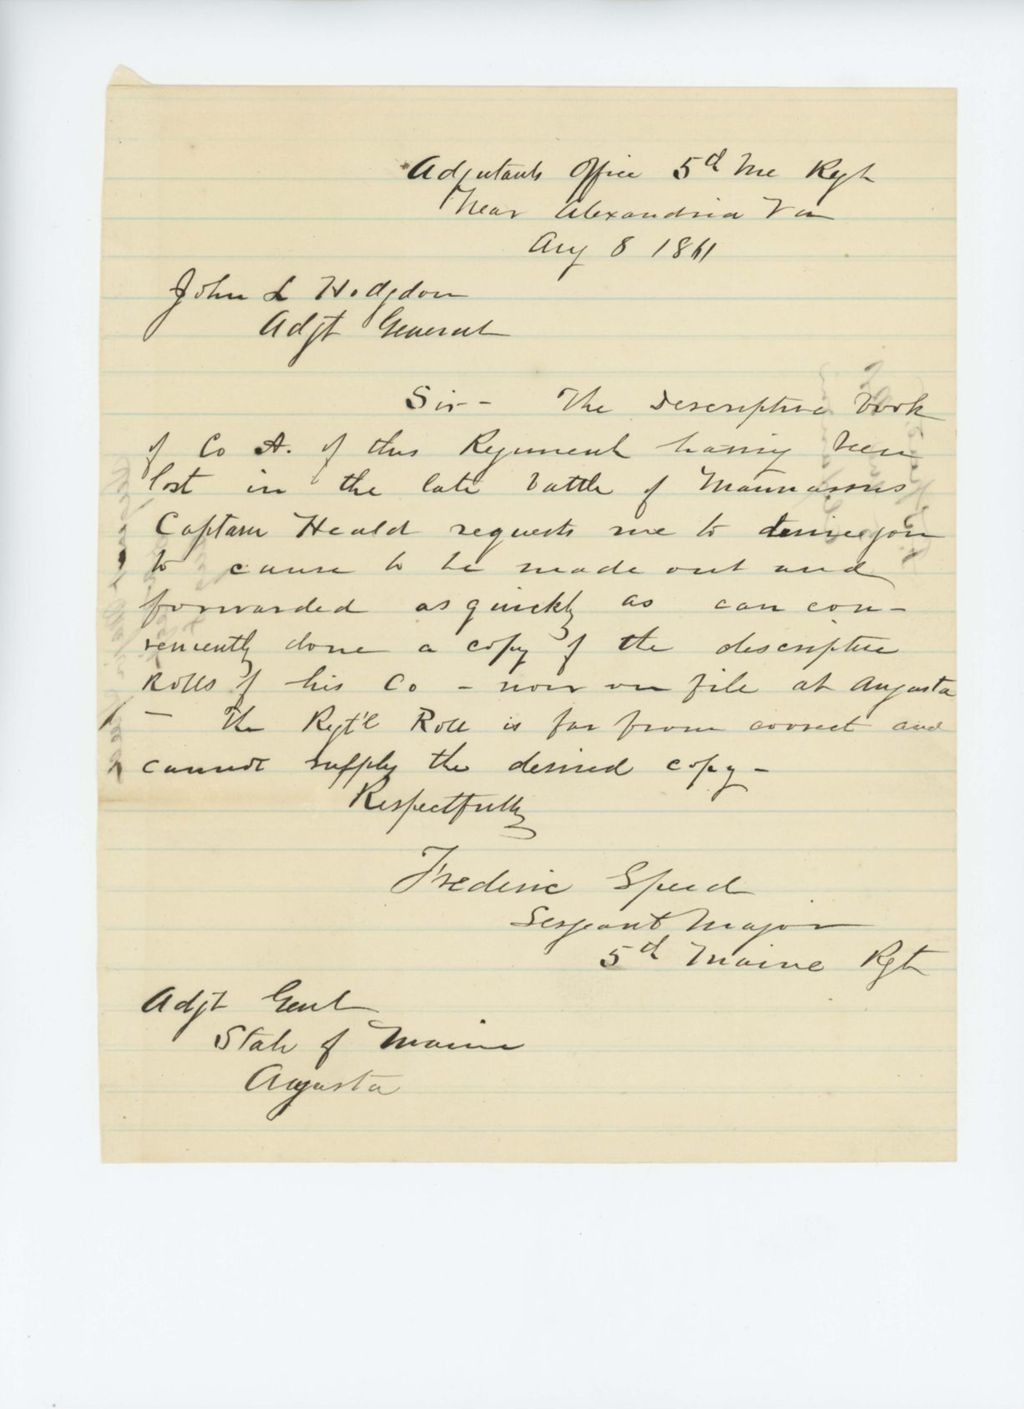 Adjutants Office 5d Me Rgt
Near Alexandria Va
Aug 8 1861
John L Hodgdon
Adjt General
Sir - The Descriptive Book
of Co A. of this Regiment having been
lost in the late battle of Mannassas
Captain Heald requests me to desire you
to cause to be made out and
forwarded as quickly as can con-
veniently done a copy of the descriptive
Rolls of his Co - now on file at Augusta
- The Regt'l Roll is far from correct and
cannot supply the desired copy -
Respectfully
Frederic Speed
Sergeant Major
5d Maine Rgt
Adjt Genl
State of Maine
Augusta